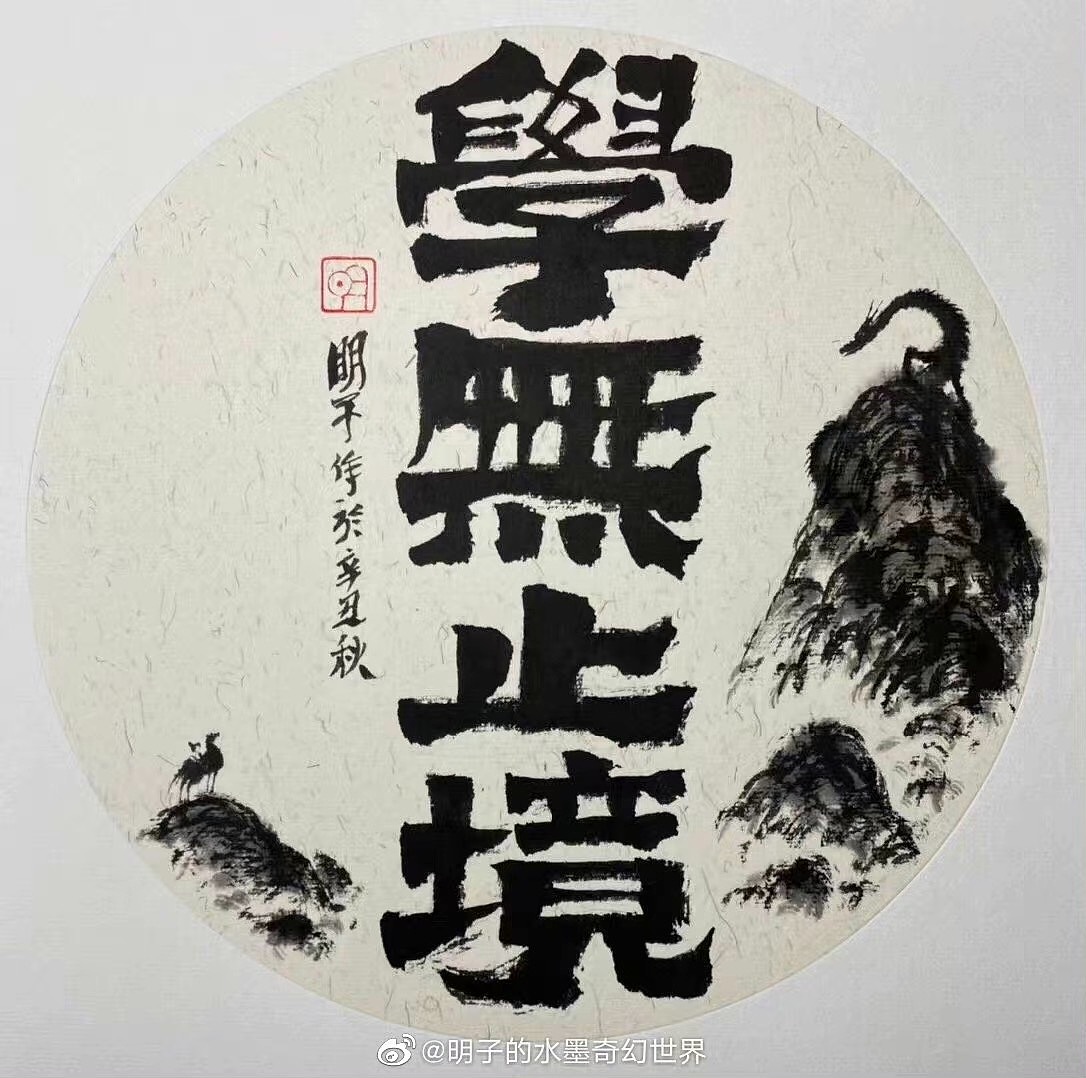 學無止境
明子作於辛丑秋
@明子的水墨奇幻世界